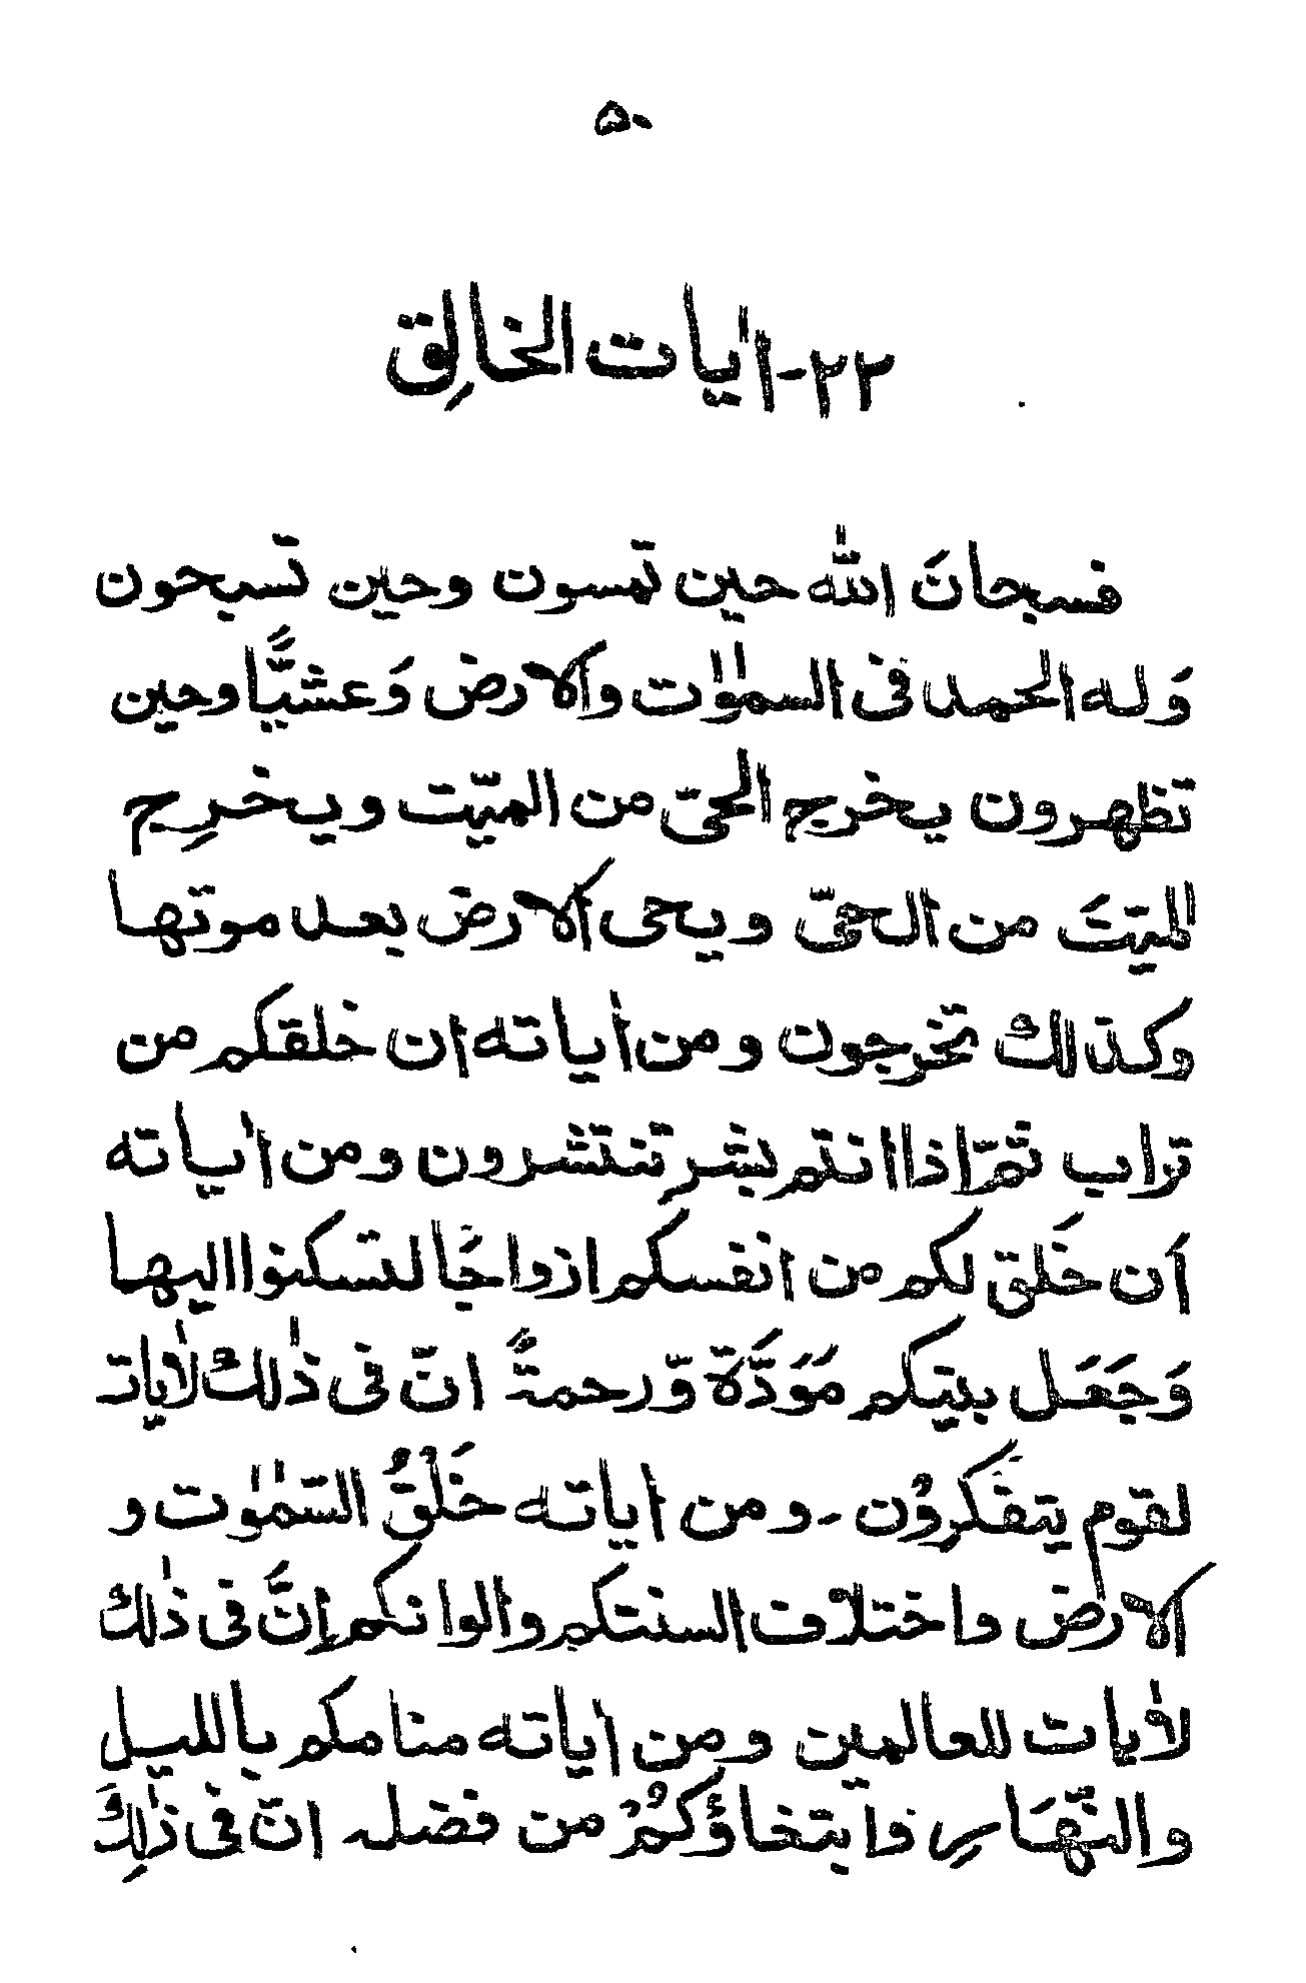 ۵۰
۲۲-اٰيات الخالِق
فسبحانَ اللّٰه حين تمسون وحين تسبحون
وَله الحمد فى السمٰوٰت والارض وَعشيًّا وحين
تظهرون يخرج الحىّ من الميّت ويخرِج
الميّتَ من الحىّ ويحى الارض بعد موتها
وكذالك تخرجون ومن اٰياته ان خلقكم من
تراب ثمّ اذا انتم بشر تنتشرون ومن اٰياته
اَن خَلق لكم من انفسكم ازواجًا لتسكنوا اليها
وَجَعَل بينكم مَوَدَّةً وّرحمةً انّ فى ذٰلك لاٰيات
لقوم يتفَكروْن - ومن اياته خَلْقُ السّمٰوٰت و
الارض واختلاف السنتكم والوانكم إنَّ فى ذٰلك
لاٰيات للعالمين ومن اٰياته منامكم بالليل
والنّهَارِ وابتغاؤكمْ من فضله انّ فى ذٰلِكَ